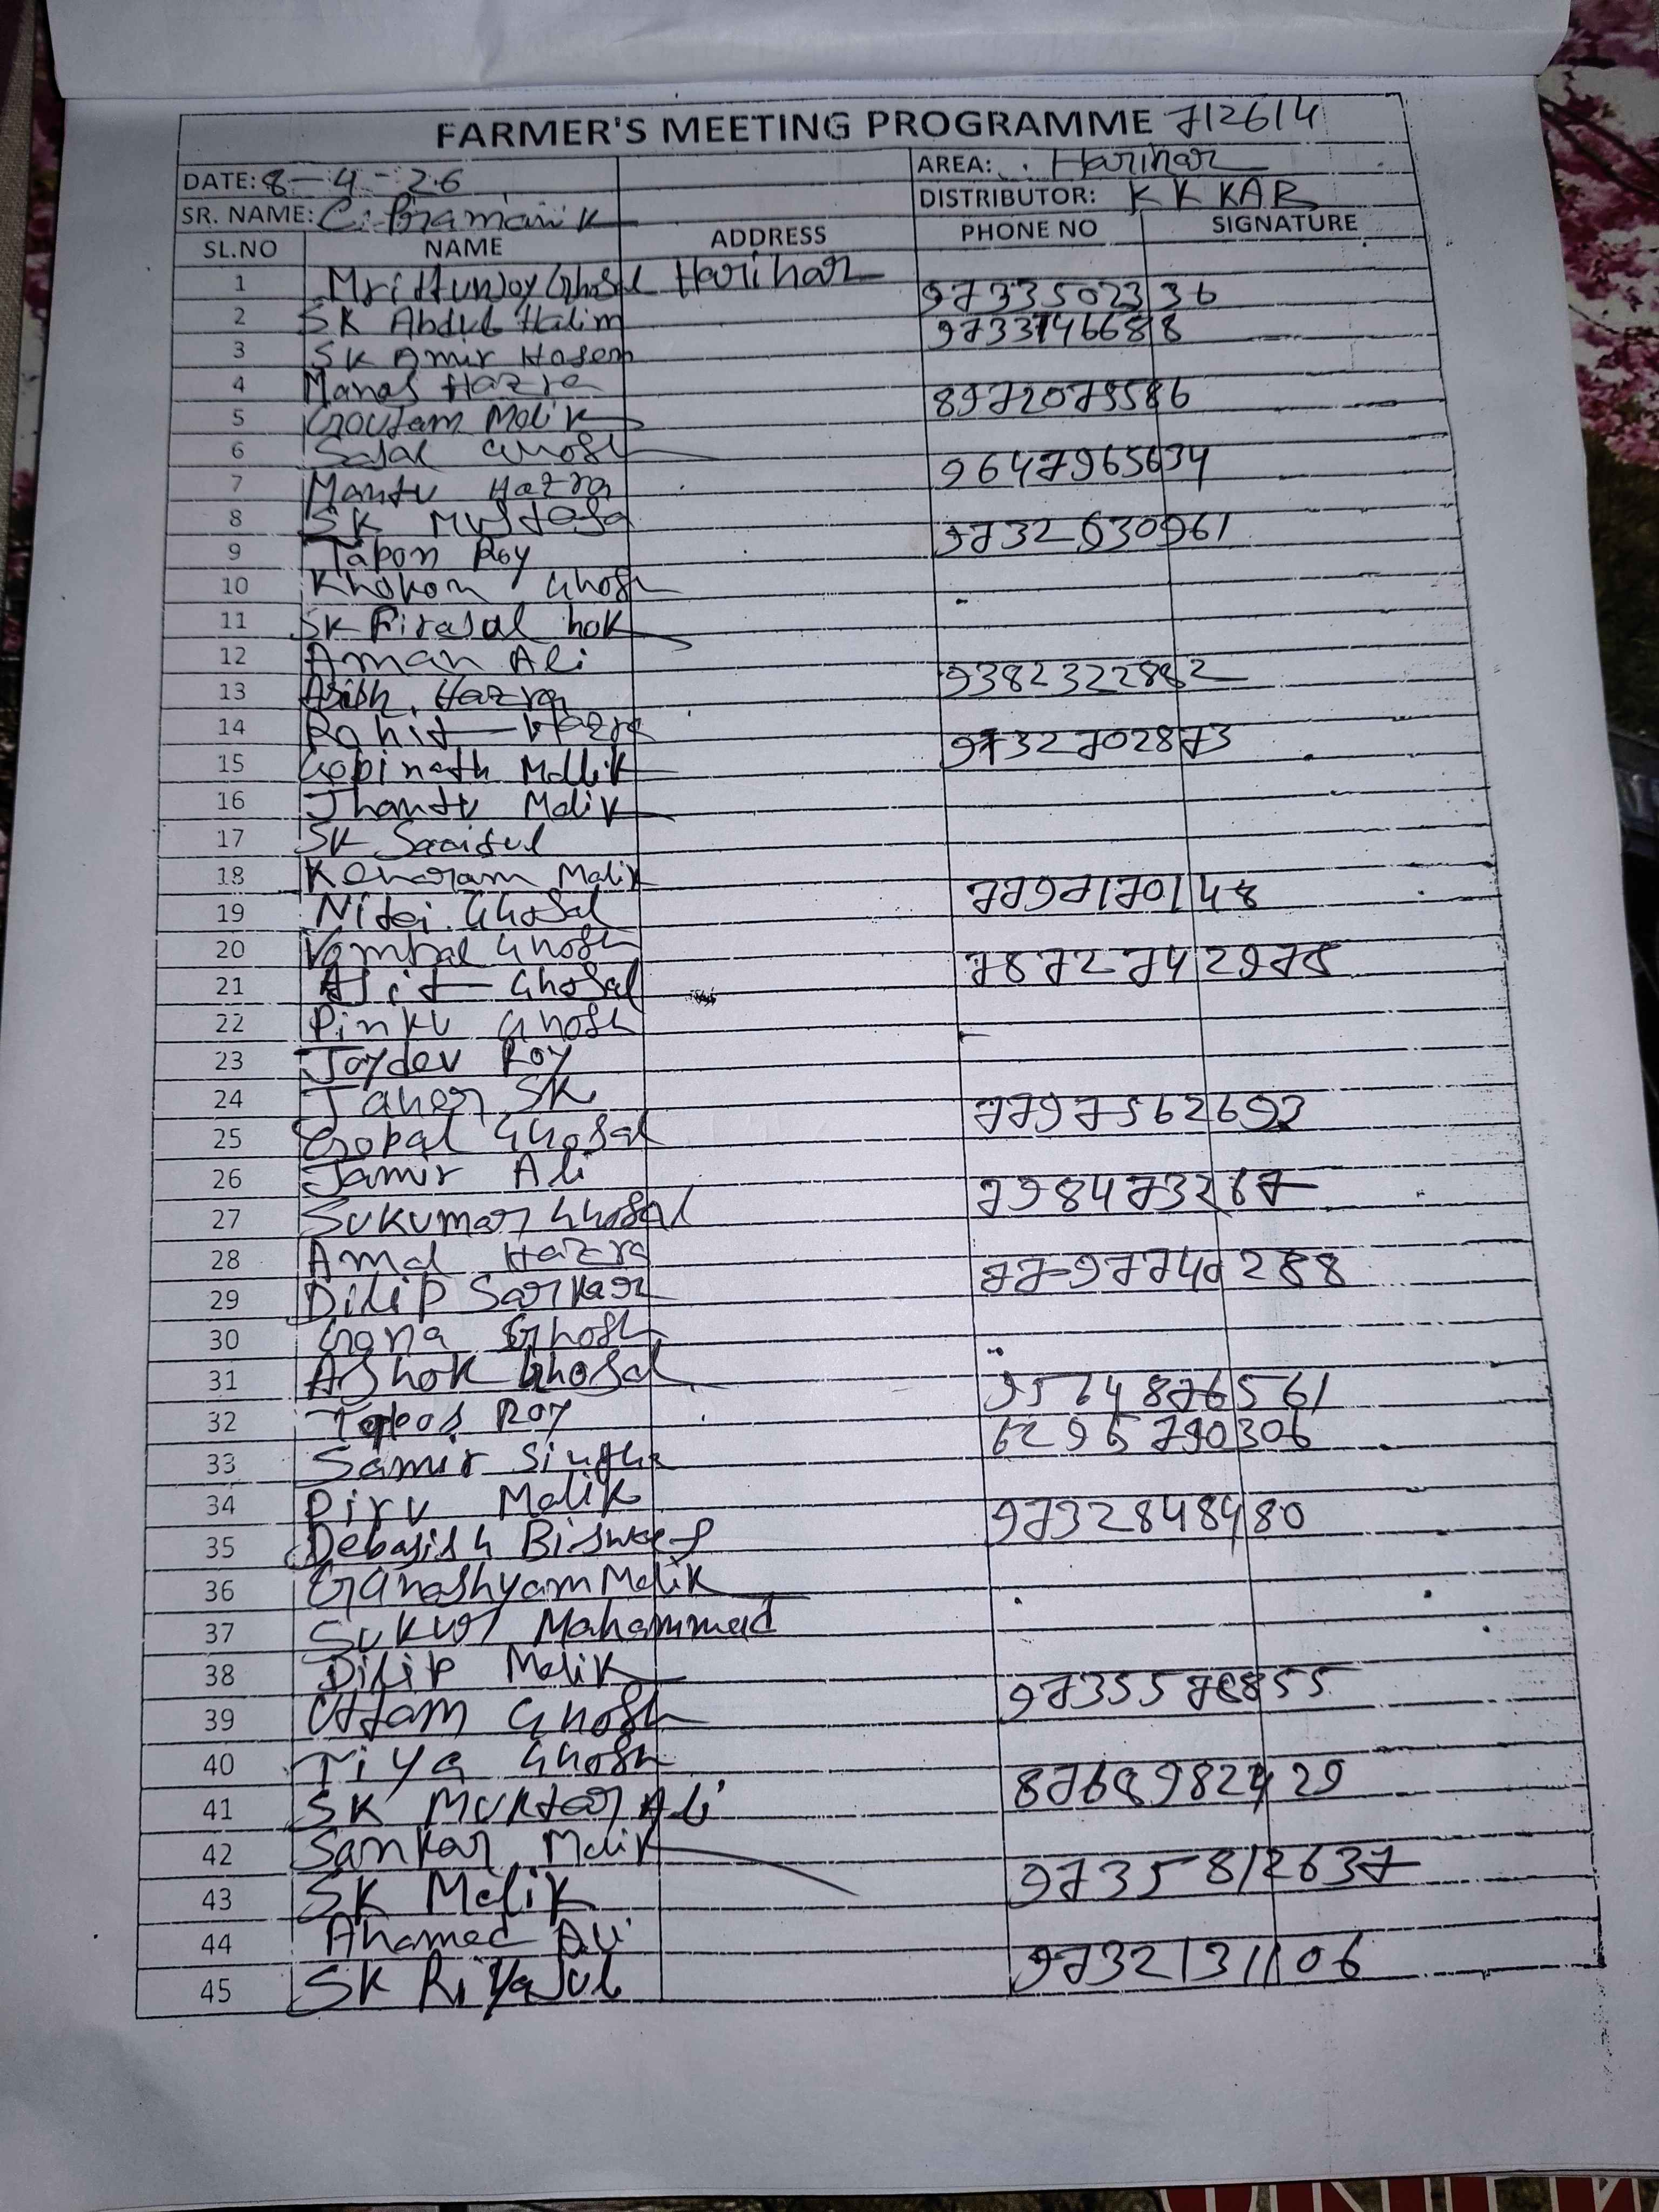 FARMER'S MEETING PROGRAMME 712614
DATE: 8-4-26 AREA: Harihar
SR. NAME: C. Pramanik DISTRIBUTOR: K K KAR
SL.NO NAME ADDRESS PHONE NO SIGNATURE
1 Mrittunjoy Ghosal Harihar 9733502336
2 SK Abdul Halim 9733746688
3 SK Amir Hosen
4 Manas Hazra 8972079586
5 Goutam Malik
6 Sajal Ghosh 9647965634
7 Mantu Hazra
8 SK Mustafa 9732630961
9 Tapon Roy
10 Khokon Ghosh
11 SK Firajul hok
12 Aman Ali 9382322862
13 Asish Hazra
14 Rohit Hazra 9732702873
15 Gopinath Mallik
16 Jhantu Malik
17 SK Saaisul
18 Kenaram Malik 7797170148
19 Nitai Ghosal
20 Ghosh 7872742978
21 Asit Ghosal
22 Pinku Ghosh
23 Joydev Roy
24 Taher SK 7797562693
25 Gopal Ghosal
26 Jamir Ali 798473267
27 Sukumar Ghosal
28 Amal Hazra 288
29 Dilip Sarkar
30 Gona Ghosh
31 Ashok Ghosal 9564876561
32 Tapos Roy 6296790306
33 Samir Singha
34 Piru Malik 9732848480
35 Debasish Biswas
36 Ganashyam Malik
37 Sukur Mahammad
38 Dilip Malik 855
39 Uttam Ghosh
40 Tiya Ghosh 429
41 SK Muktar Ali
42 Sankar Malik 9735812637
43 SK Malik
44 Ahamed Ali 9732131106
45 SK Riyajul